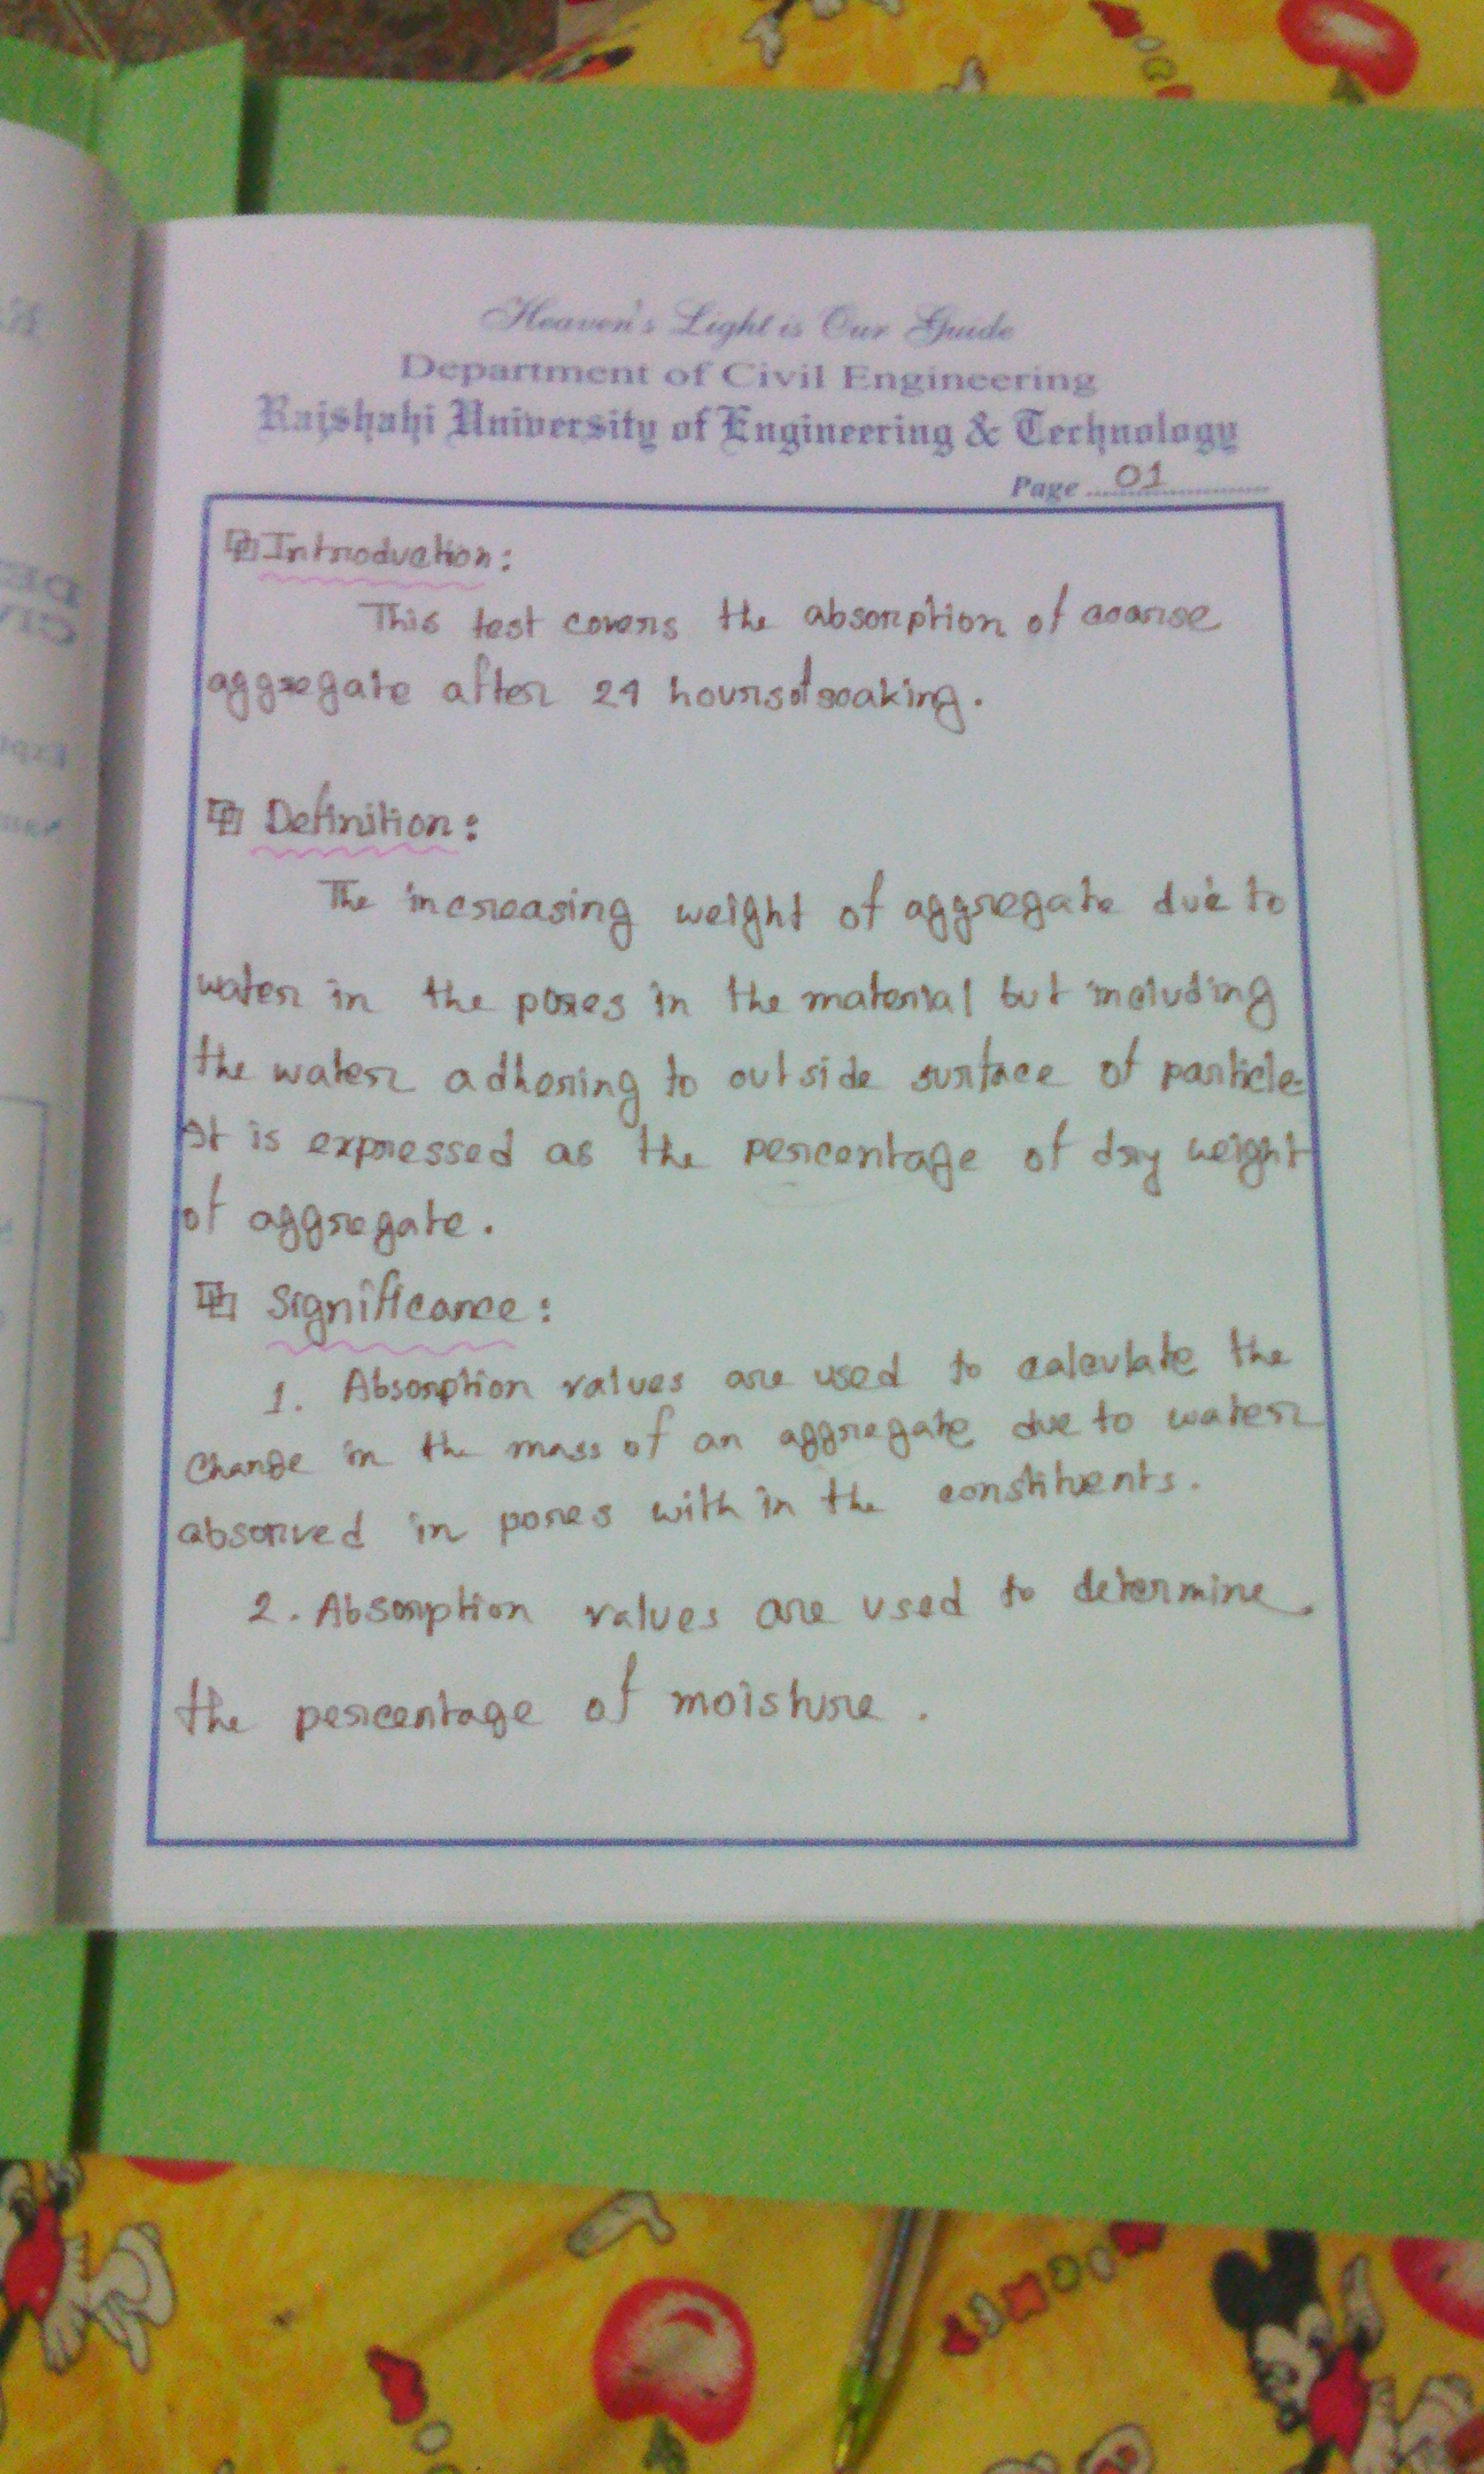 Heaven's Light is Our Guide
Department of Civil Engineering
Rajshahi University of Engineering & Technology
Page ........01................
Introduction:
This test covers the absorption of coarse
aggregate after 24 hours of soaking.
Definition:
The increasing weight of aggregate due to
water in the pores in the material but including
the water adhering to outside surface of particle.
It is expressed as the percentage of dry weight
of aggregate.
Significance:
1. Absorption values are used to calculate the
change in the mass of an aggregate due to water
absorved in pores with in the constituents.
2. Absorption values are used to determine
the percentage of moisture.